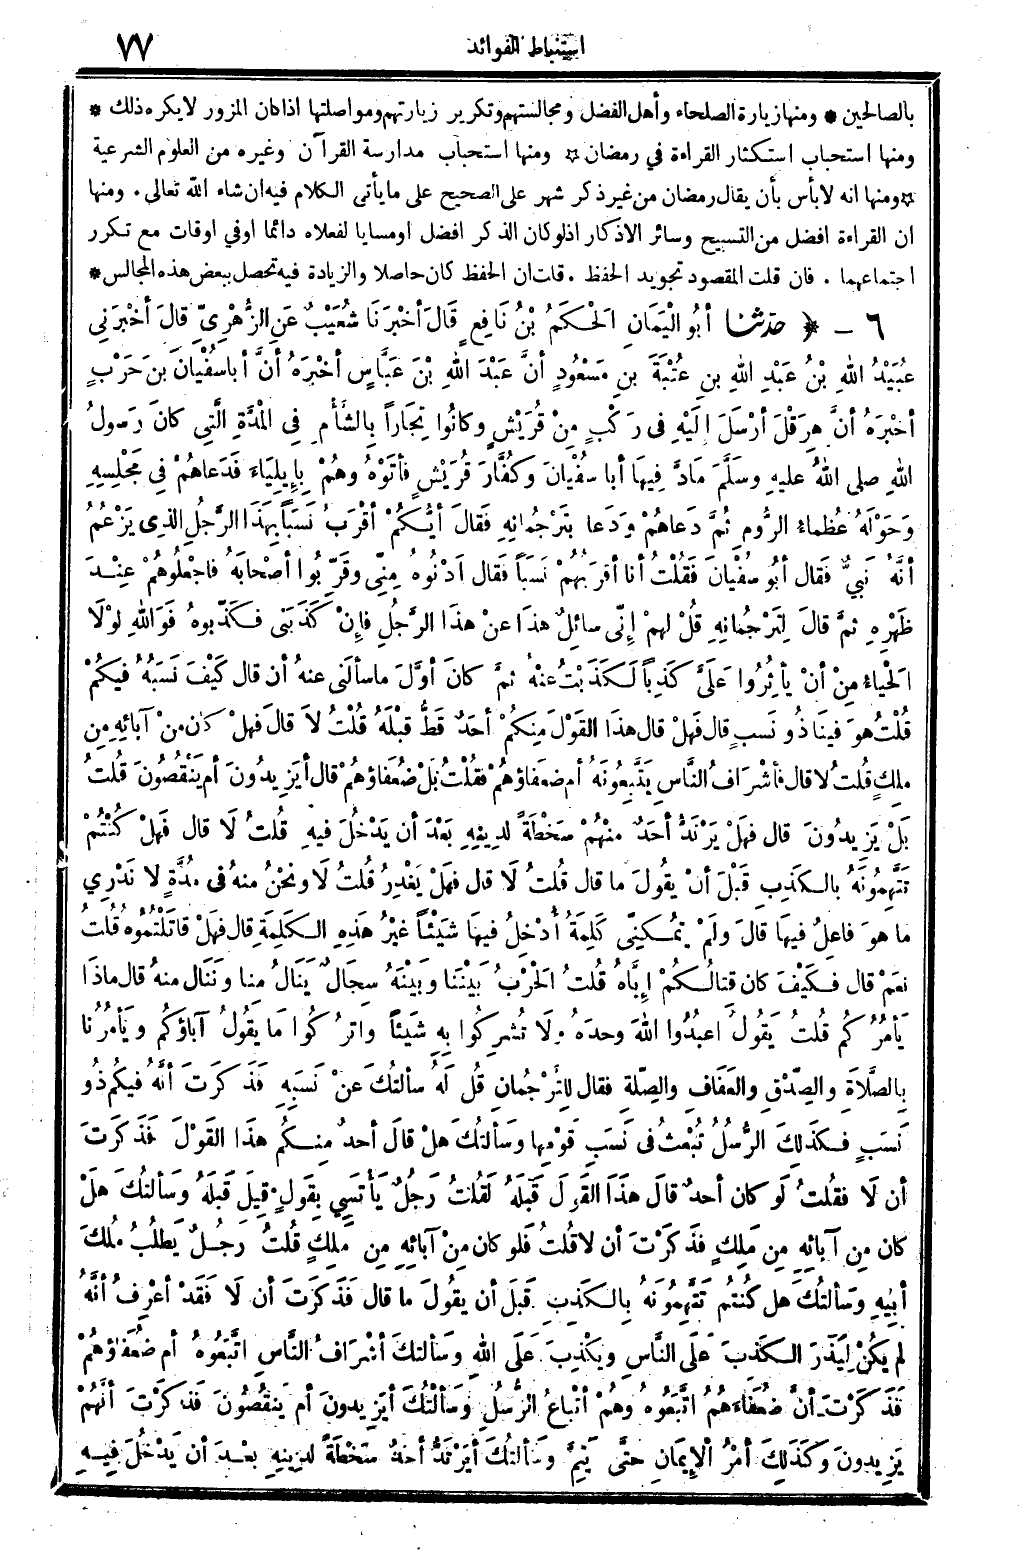 استنباط الفوائد
٧٧
بالصالحين * ومنها زيارة الصلحاء وأهل الفضل ومجالستهم وتكرير زيارتهم ومواصلتها اذا كان المزور لا يكره ذلك *
ومنها استحباب استكثار القراءة في رمضان * ومنها استحباب مدارسة القرآن وغيره من العلوم الشرعية
* ومنها انه لا بأس بأن يقال رمضان من غير ذكر شهر على الصحيح على ما يأتى الكلام فيه ان شاء الله تعالى . ومنها
ان القراءة افضل من التسبيح وسائر الاذكار اذ لو كان الذكر افضل او مساويا لفعلاه دائما او في اوقات مع تكرر
اجتماعهما . فان قلت المقصود تجويد الحفظ . قلت ان الحفظ كان حاصلا والزيادة فيه تحصل ببعض هذه المجالس *
٦ - ﴿ حدثنا أبُو اليَمَانِ الحَكَمُ بْنُ نَافِعٍ قَالَ أخْبَرَنَا شُعَيْبٌ عَنِ الزُّهْرِىِّ قالَ أخْبَرَنِي
عُبَيْدُ اللهِ بْنُ عَبْدِ اللهِ بنِ عُتْبَةَ بنِ مَسْعُودٍ أنَّ عَبْدَ اللهِ بْنَ عَبَّاسٍ أخْبَرَهُ أنَّ أباسُفْيانَ بنَ حَرْبٍ
أخْبَرَهُ أنَّ هِرَقْلَ أرْسَلَ إلَيْهِ فى رَكْبٍ مِنْ قُرَيْشٍ وكانُوا تِجَاراً بالشَّأْمِ فِى المُدَّةِ الَّتِي كانَ رَسولُ
اللهِ صلى اللهُ عليهِ وسَلَّمَ مَادَّ فِيهَا أبا سُفْيَانَ وكُفَّارَ قُرَيْشٍ فأتَوْهُ وهُمْ بإِيلِيَاءَ فَدَعاهُمْ فِي مَجْلِسِهِ
وَحَوْلَهُ عُظَماءُ الرُّومِ ثُمَّ دَعاهُمْ ودَعا بتَرْجُمانِهِ فَقالَ أيُّكُمْ أقْرَبُ نَسَباً بِهَذَا الرَّجُلِ الذِى يَزْعُمُ
أنَّهُ نَبيٌّ فَقال أبُو سُفْيانَ فَقُلْتُ أنا أقرَبُهُمْ نَسَباً فَقال ادْنُوهُ مِنِّى وقَرِّبُوا أصْحابَهُ فاجْعَلُوهُمْ عِنْدَ
ظَهْرِهِ ثمَّ قالَ لِتَرْجُمَانِهِ قُلْ لهمْ إنِّى سائِلٌ هذَا عنْ هذَا الرَّجُلِ فإنْ كَذَبَنِى فكَذِّبوهُ فَوَاللهِ لوْلَا
الحْياءُ مِنْ أنْ يأثِرُوا عَلَيَّ كَذِباً لَكَذَبْتُ عنْهُ ثمَّ كانَ أوَّلَ ماسألَنى عنهُ أن قال كَيْفَ نَسَبُهُ فيكُمْ
قُلْتُ هوَ فينَا ذُو نَسبٍ قال فهَلْ قال هذَا القَوْلَ مِنكُمْ أحَدٌ قَطُّ قبْلَهُ قُلْتُ لاَ قالَ فهلْ كانَ منْ آبائِهِ مِن
ملِكٍ قُلتُ لا قال فأشْرَافُ النَّاسِ يَتَّبِعُونَهُ أم ضعَفاؤهُمْ فقُلْتُ بَلْ ضُعَفاؤهُمْ قال أيَزيدُونَ أم يَنْقُصُونَ قُلْتُ
بَلْ يَزيدُونَ قال فهَلْ يَرْتَدُّ أحَدٌ منْهُمْ سَخْطَةً لدِينِهِ بَعْدَ أن يَدْخُلَ فيهِ قُلتُ لَا قال فَهلْ كُنْتُمْ
تَتَّهِمُونَهُ بالكَذِبِ قَبْلَ أنْ يقُولَ ما قال قُلْتُ لَا قال فهَلْ يَغْدِرُ قُلتُ لَا ونحْنُ منهُ فى مُدَّةٍ لا نَدْرِي
ما هوَ فاعِلٌ فيها قالَ ولَمْ تُمْكِنِّى كَلِمَةٌ أُدْخِلُ فيهَا شَيْئاً غَيْرُ هَذِهِ الكَلِمَةِ قال فهَلْ قاتَلْتُمُوه قُلتُ
نعَمْ قال فكَيْفَ كان قتالُكُمْ إيَّاهُ قُلتُ الحَرْبُ بَيْنَنا وبَيْنَهُ سِجَالٌ يَنَالُ منا ونَنَال منهُ قال ماذَا
يَأمُرُكُم قُلتُ يَقُولُ اعبُدُوا اللهَ وحدَهُ ولَا تُشْرِكُوا بِهِ شَيئاً واترُكُوا مَا يقُولُ آباؤكُم ويَأمُرُنا
بِالصَّلَاةِ والصِّدْقِ والعَفَافِ والصِّلَةِ فقال لِلتَّرْجُمانِ قُل لَهُ سألتُكَ عَنْ نَسَبِهِ فَذَكَرتَ أنَّهُ فيكُم ذُو
نَسَبٍ فكَذلِكَ الرُّسُلُ تُبْعَثُ فى نَسَبِ قَوْمِها وسَألتُكَ هلْ قالَ أحدٌ مِنكُم هذَا القَوْلَ فَذَكرتَ
أن لَا فقُلتُ لَو كان أحدٌ قالَ هَذَا القَولَ قَبْلَهُ لَقلتُ رَجلٌ يأتَسِي بِقَولٍ قِيلَ قَبلَهُ وسَألتكَ هلْ
كان مِن آبائِهِ مِن مَلِكٍ فذَكرْتَ أن لا قُلتُ فَلو كان مِنْ آبائِهِ مِن مَلِكٍ قُلتُ رَجُلٌ يَطلُبُ مُلكَ
أبِيهِ وسَألتُكَ هل كُنتُم تَتَّهِمُونَهُ بالكَذِبِ قبلَ أن يقُولَ ما قال فَذَكَرتَ أن لَا فَقَدْ أعْرِفُ أنَّهُ
لم يَكُنْ لِيَذَرَ الكَذِبَ عَلَى النَّاسِ ويَكْذِبَ عَلَى اللهِ وسَألتكَ أشْرَافُ النَّاسِ اتَّبَعُوهُ أم ضُعَفاؤهُمْ
فَذَكَرْتَ أنَّ ضُعَفَاءهُمُ اتَّبَعُوه وهُمْ أتْباعُ الرُّسُلِ وسَألْتُكَ أيَزِيدون أم يَنقُصُونَ فَذكَرْتَ أنَّهُمْ
يَزيدونَ وكَذَلِكَ أمْرُ الإيمَانِ حتَّى يَتِمَّ وسَألتُكَ أيَرْتَدُّ أحدٌ سَخْطَةً لدِينِهِ بعْدَ أن يَدْخُلَ فِيهِ